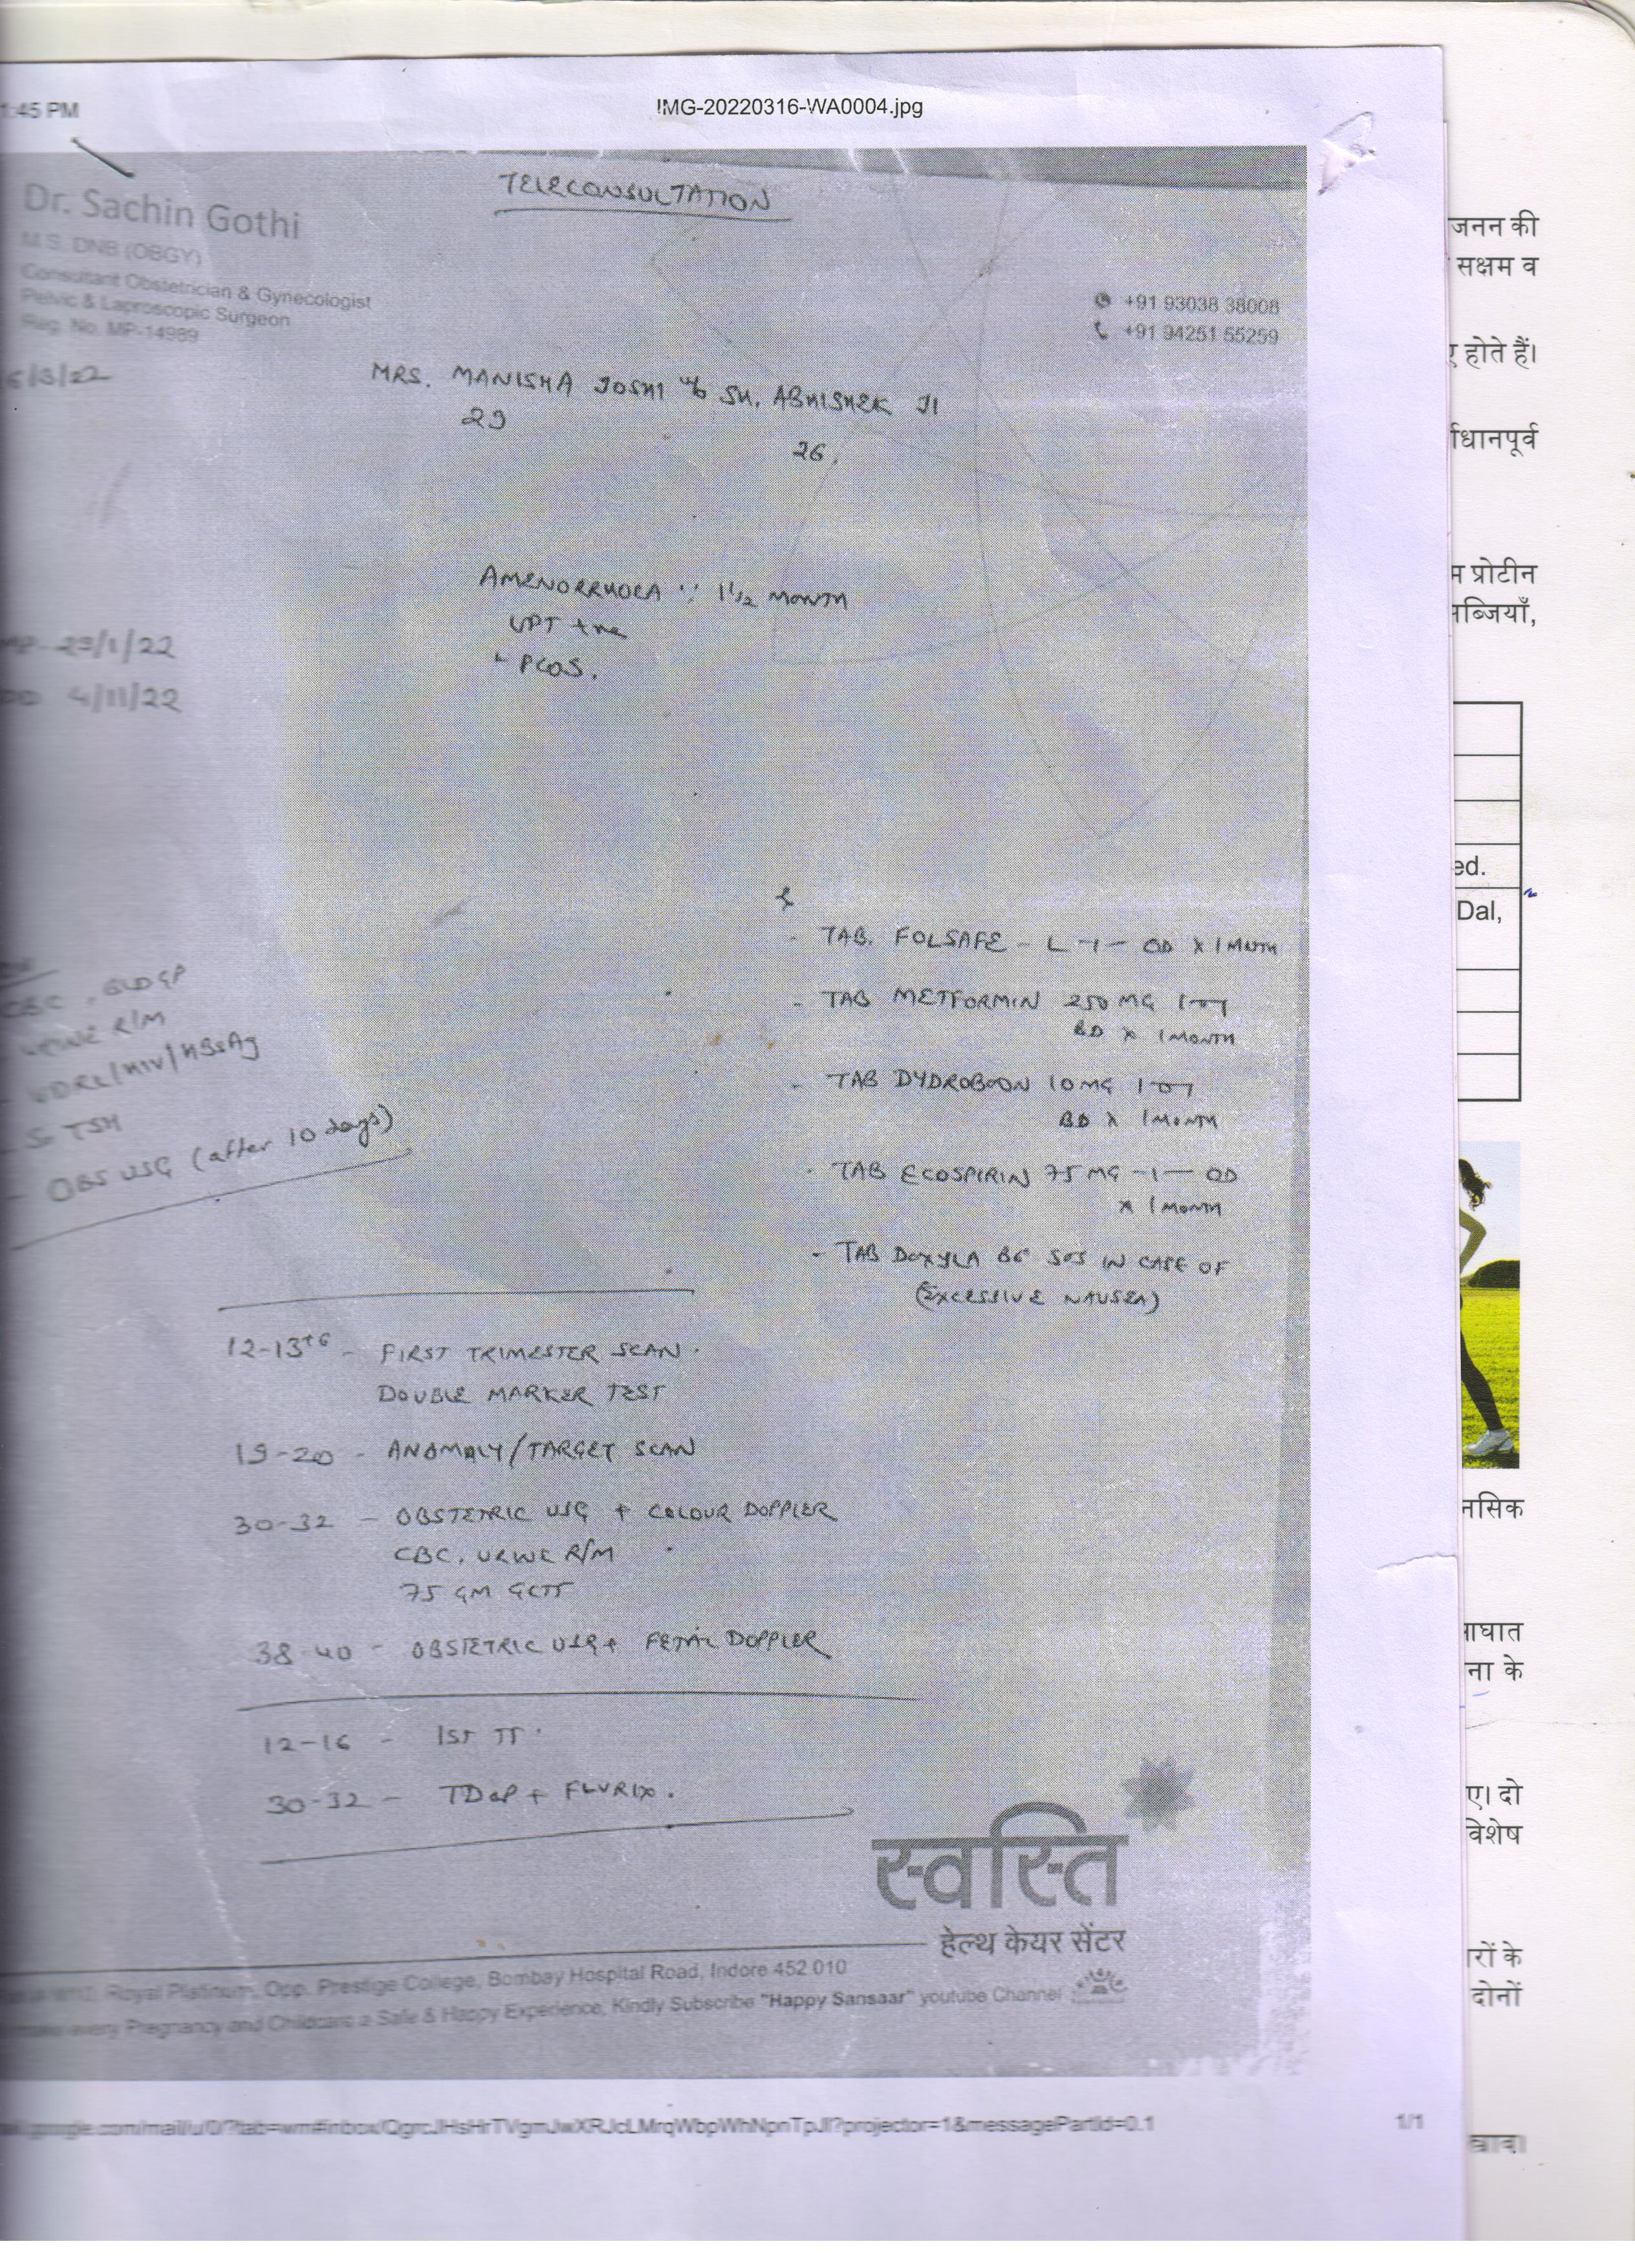 1:45 PM
IMG-20220316-WA0004.jpg
TELECONSULTATION
Dr. Sachin Gothi
M.S. DNB (OBGY)
Consultant Obstetrician & Gynecologist
Pelvic & Laproscopic Surgeon
Reg. No. MP-14989
+91 93038 38008
+91 94251 55259
6/3/22
MRS. MANISHA JOSHI W/o SH. ABHISHEK JI
29
26.
AMENORRHOEA 1 1/2 MONTH
UPT +ve
PCOS.
MP 29/1/22
DD 4/11/22
TAB. FOLSAFE - L -1- OD X 1 MONTH
- TAB METFORMIN 250 MG 1-0-1
BD X 1 MONTH
- TAB DYDROBOON 10 MG 1-0-1
BD X 1 MONTH
- TAB ECOSPIRIN 75 MG -1- OD
X 1 MONTH
- TAB DOXYLA B6 SOS IN CASE OF
(EXCESSIVE NAUSEA)
CBC, BLD GP
URINE R/M
- VDRL/HIV/HBsAg
- S. TSH
- OBS USG (after 10 days)
12-13+6 - FIRST TRIMESTER SCAN.
DOUBLE MARKER TEST
19-20 - ANOMALY/TARGET SCAN
30-32 - OBSTETRIC USG + COLOUR DOPPLER
CBC, URINE R/M
75 GM GCTT
38-40 - OBSTETRIC USG + FETAL DOPPLER
12-16 - 1ST TT.
30-32 - TDaP + FLURIX.
स्वस्ति
हेल्थ केयर सेंटर
Royal Platinum, Opp. Prestige College, Bombay Hospital Road, Indore 452 010
make every Pregnancy and Childcare a Safe & Happy Experience, Kindly Subscribe "Happy Sansaar" youtube Channel
google.com/mail/u/0/?tab=wm#inbox/QgrcJHsHrTVgmJwXRJcLMrqWbpWhNpnTpJl?projector=1&messagePartId=0.1
1/1
जनन की
सक्षम व
होते हैं।
र्धानपूर्व
म प्रोटीन
ब्जियाँ,
ed.
Dal,
नसिक
घात
ना के
ए। दो
विशेष
रों के
दोनों